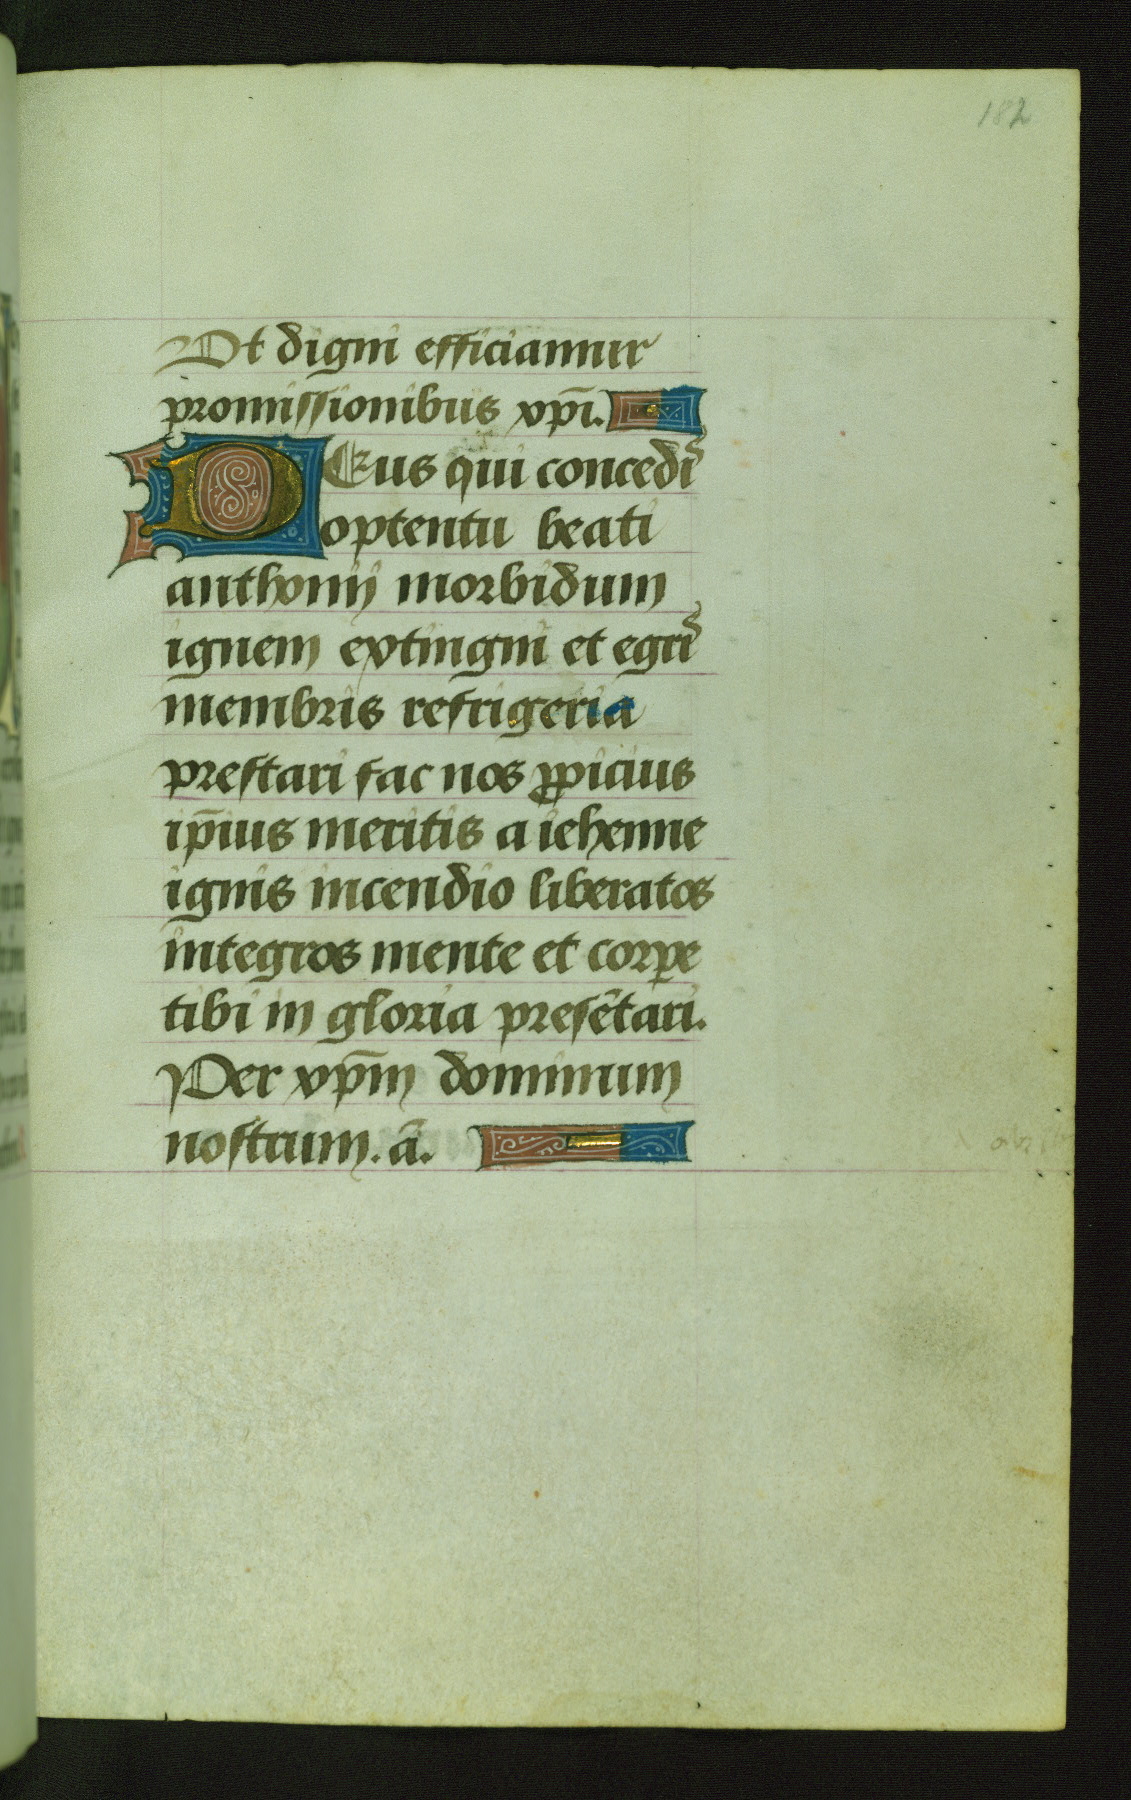 182
Ut digni efficiamur
promissionibus xpī.
DEus qui concedis
optentu beati
anthonij morbidum
ignem extingui et egris
membris refrigeria
prestari fac nos ꝓpicius
ip̄ius meritis a iehenne
ignis incendio liberatos
integros mente et corꝑe
tibi in gloria presētari.
Per xpm̄ dominum
nostrum. ā.